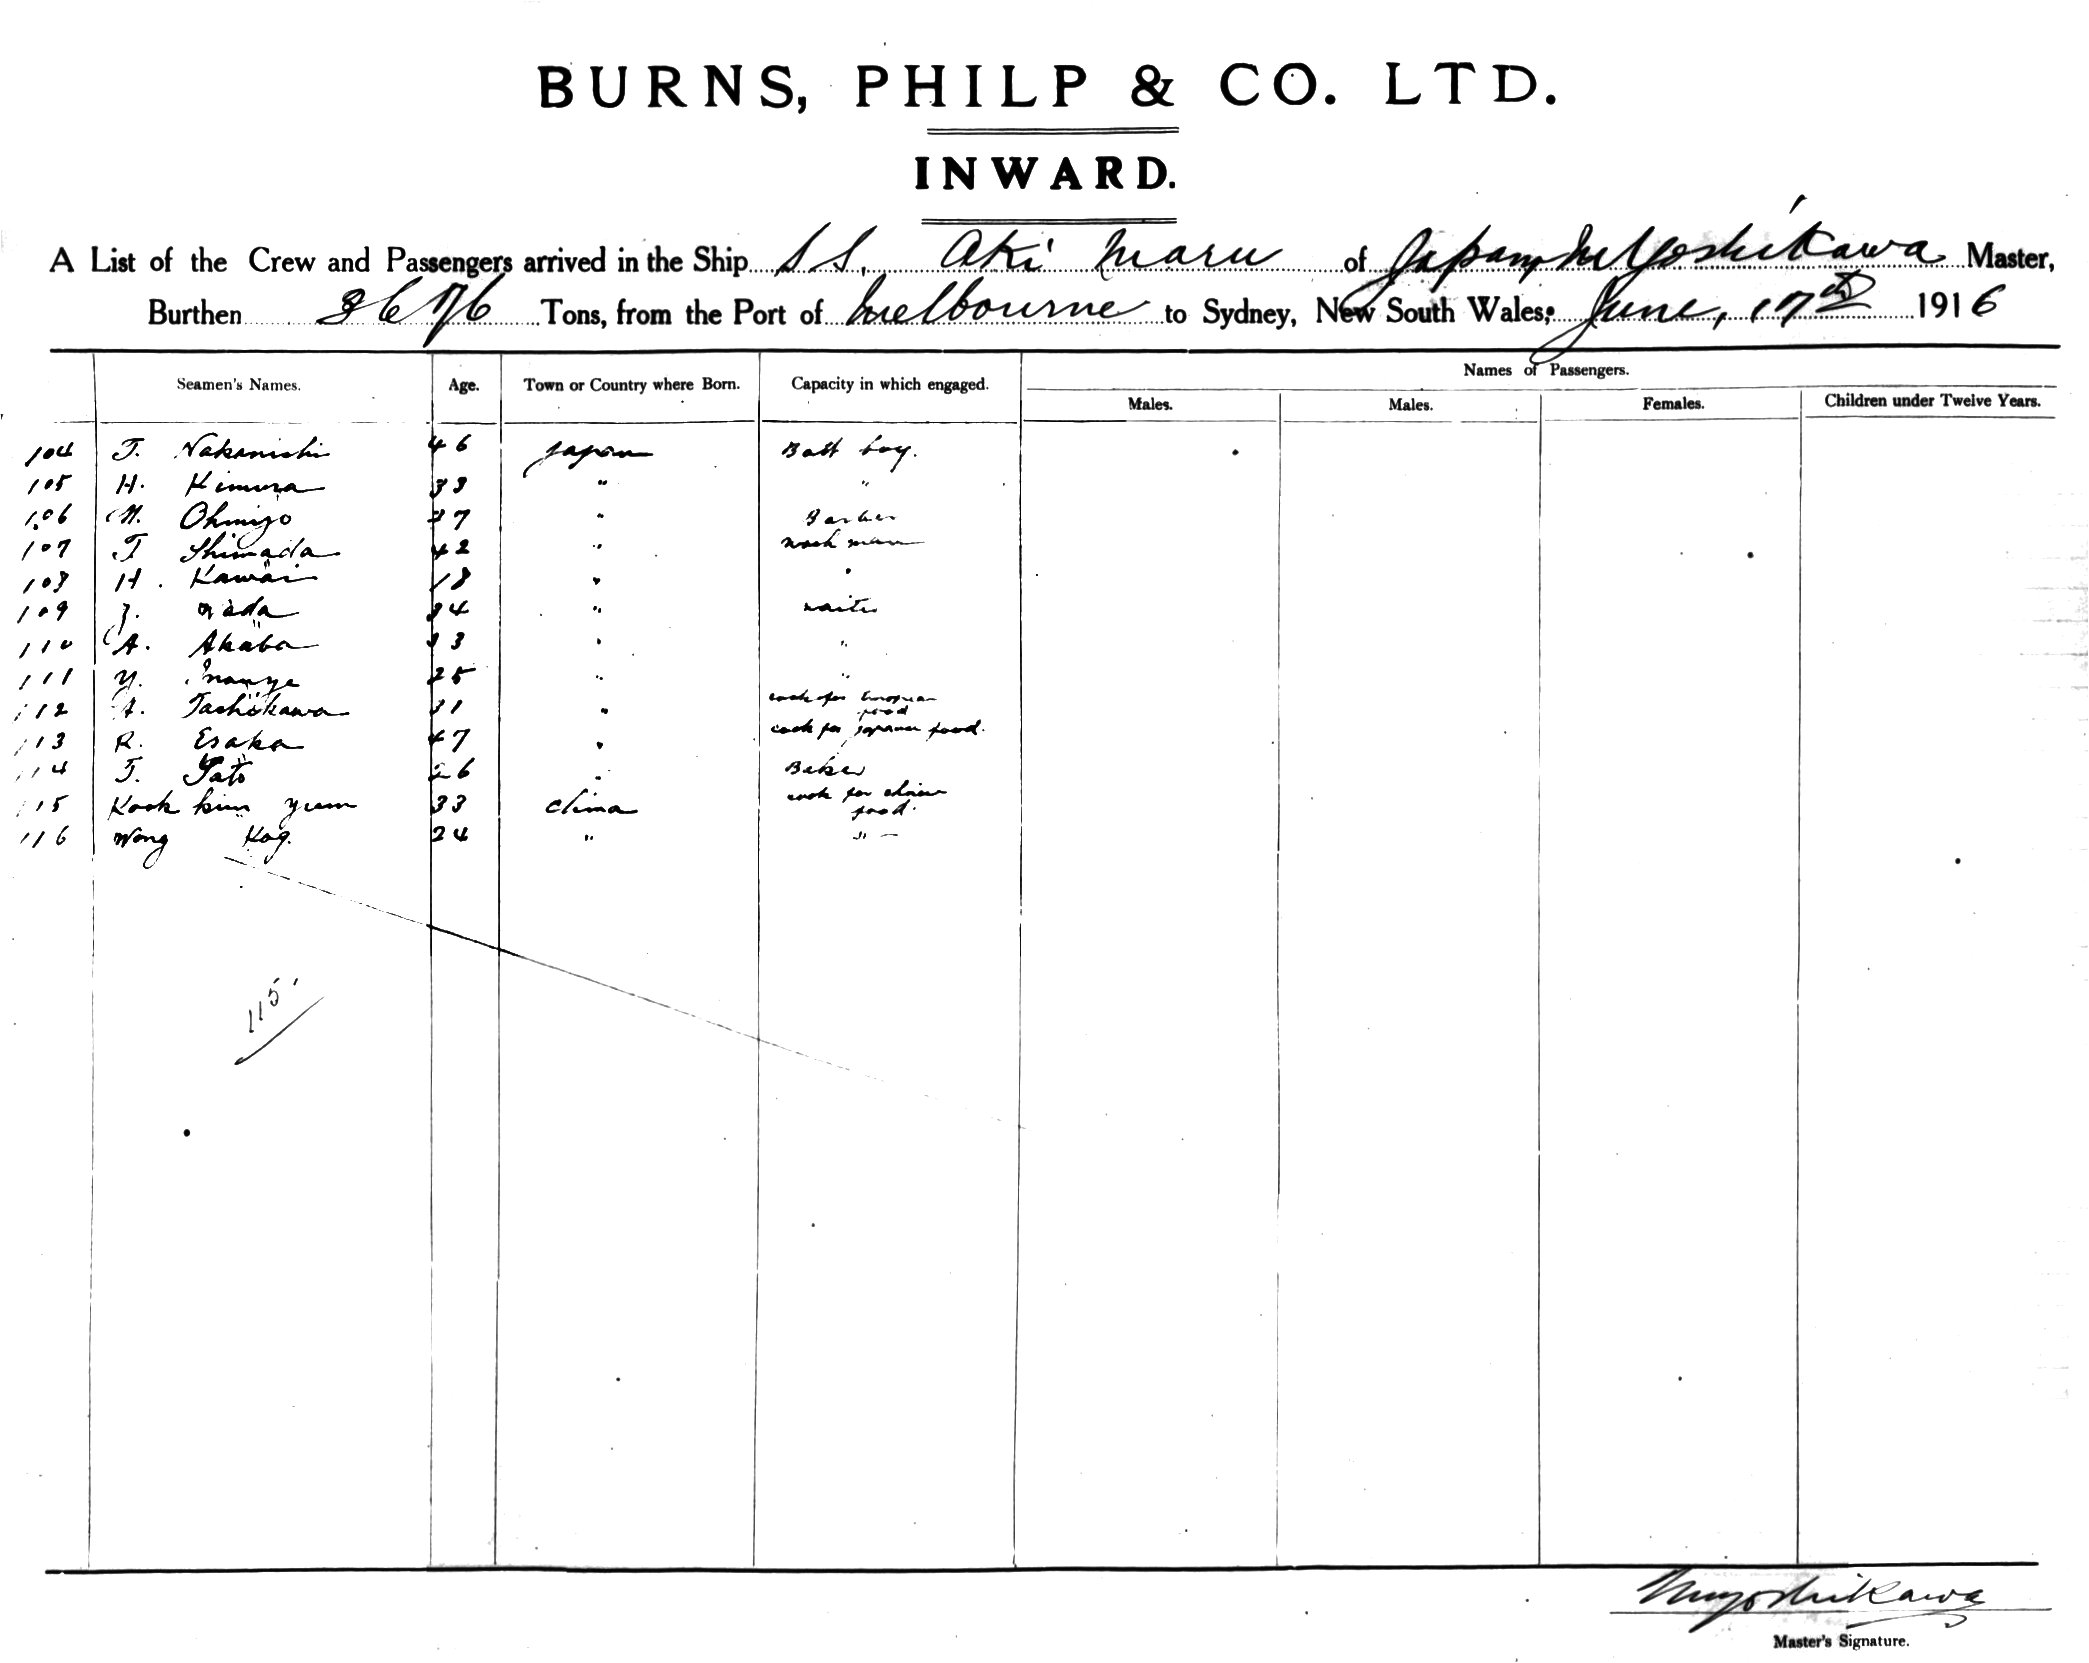 BURNS, PHILP & CO. LTD.
INWARD.
A List of the Crew and Passengers arrived in the Ship S S. Aki Maru of Japan, M Yoshikawa Master,
Burthen 3676 Tons, from the Port of Melbourne to Sydney, New South Wales; June, 17th 1916
Names of Passengers.
Seamen's Names. Age. Town or Country where Born. Capacity in which engaged. Males. Males. Females. Children under Twelve Years.
104 T. Nakanishi 46 Japan Bath boy.
105 H. Kimura 33 " "
106 Ohmizo 37 " Barber
107 T Shimada 42 " wash man
108 H. Kawai 18 " "
109 J. Wada 34 " waiter
110 A. Akaba 33 " "
111 Y. Inouye 25 " "
112 A. Tachikawa 31 " cook for European food
113 R. Esaka 47 " cook for Japanese food.
114 T. Sato 26 " Baker
115 Kook kim yum 33 China cook for chinese food.
116 Wong Kog. 24 " "
115.
M Yoshikawa
Master's Signature.